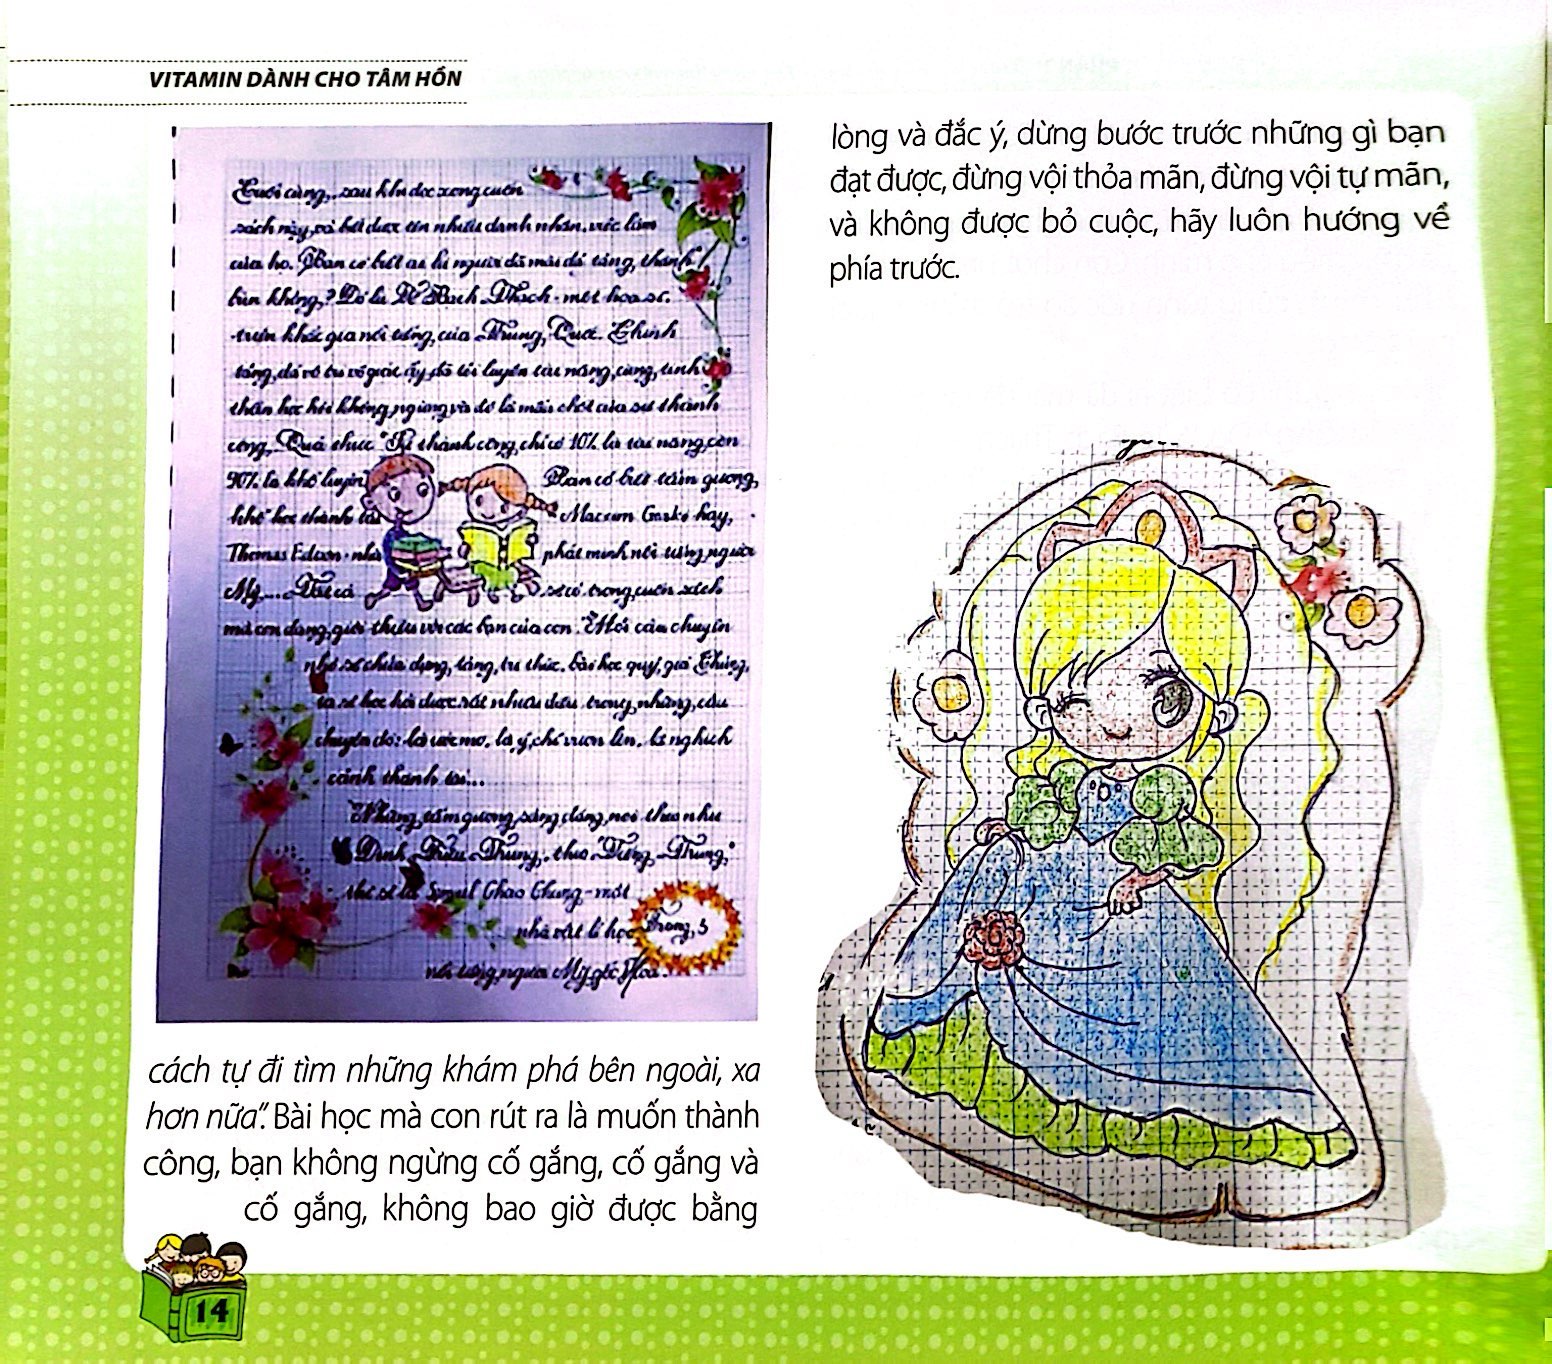 VITAMIN DÀNH CHO TÂM HỒN
Cuối cùng, sau khi đọc xong cuốn
sách này, và biết được tên nhiều danh nhân, việc làm
của họ. Bạn có biết ai là người đã mài đá tảng, thành
bùn không? Đó là Tề Bạch Thạch - một họa sĩ.
triện khắc gia nổi tiếng của Trung Quốc. Chính
tảng đá vô tri vô giác ấy đã tôi luyện tài năng cùng tinh
thần học hỏi không ngừng và đó là mấu chốt của sự thành
công. Quả thực "Sự thành công chỉ có 10% là tài năng còn
90% là khổ luyện Bạn có biết tấm gương
khổ học thành tài Macxim Gorki hay,
Thomas Edison - nhà phát minh nổi tiếng người
Mỹ.... Tất cả sẽ có trong cuốn sách
mà con đang giới thiệu với các bạn của con. Mỗi câu chuyện
nhỏ sẽ chứa đựng từng tri thức, bài học quý giá Chúng
ta sẽ học hỏi được rất nhiều điều trong những câu
chuyện đó: là ước mơ, là ý chí vươn lên, là nghịch
cảnh thành tài...
Những tấm gương sáng đáng noi theo như
Đinh Triệu Trung, theo "Tiếng Trung"
thì sẽ là Samuel Chao Chung - một
nhà vật lí học
nổi tiếng người Mỹ gốc Hoa.
Trang 5
cách tự đi tìm những khám phá bên ngoài, xa
hơn nữa". Bài học mà con rút ra là muốn thành
công, bạn không ngừng cố gắng, cố gắng và
cố gắng, không bao giờ được bằng
lòng và đắc ý, dừng bước trước những gì bạn
đạt được, đừng vội thỏa mãn, đừng vội tự mãn,
và không được bỏ cuộc, hãy luôn hướng về
phía trước.
14